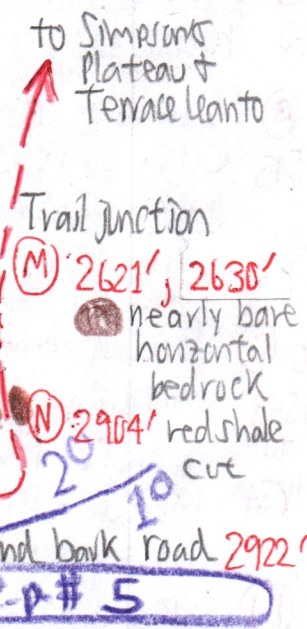 to Simpsons
Plateau &
Terrace leanto
Trail Junction
M 2621', 2630'
nearly bare
horizontal
bedrock
N 2904' red shale
cut
2°
1°
nd bark road 2922'
-p# 5